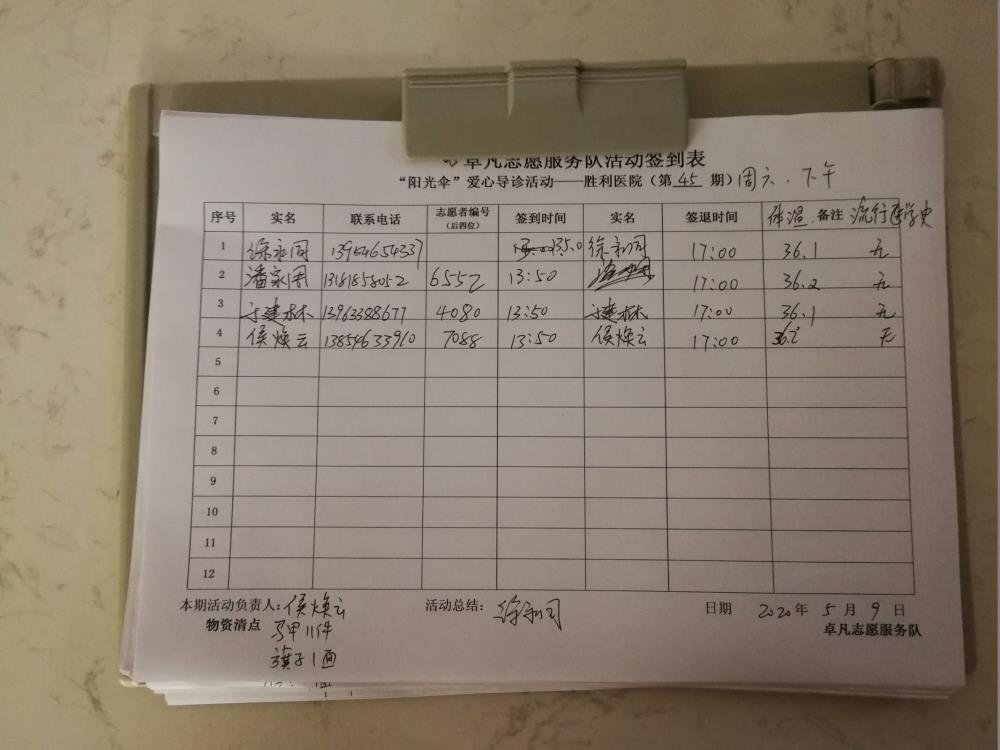 卓凡志愿服务队活动签到表
“阳光伞”爱心导诊活动——胜利医院（第 45 期）周六.下午
序号 实名 联系电话 志愿者编号（后四位） 签到时间 实名 签退时间 体温 备注 流行病学史
1 徐永同 13954654337 徐永同 17:00 36.1 无
2 潘家用 13181858052 6552 13:50 17:00 36.2 无
3 于建林 13963388677 4080 13:50 于建林 17:00 36.1 无
4 侯焕云 13854633910 7088 13:50 侯焕云 17:00 36.2 无
5
6
7
8
9
10
11
12
本期活动负责人：侯焕云 活动总结： 日期 2020 年 5 月 9 日
物资清点 马甲11件 卓凡志愿服务队
旗子1面